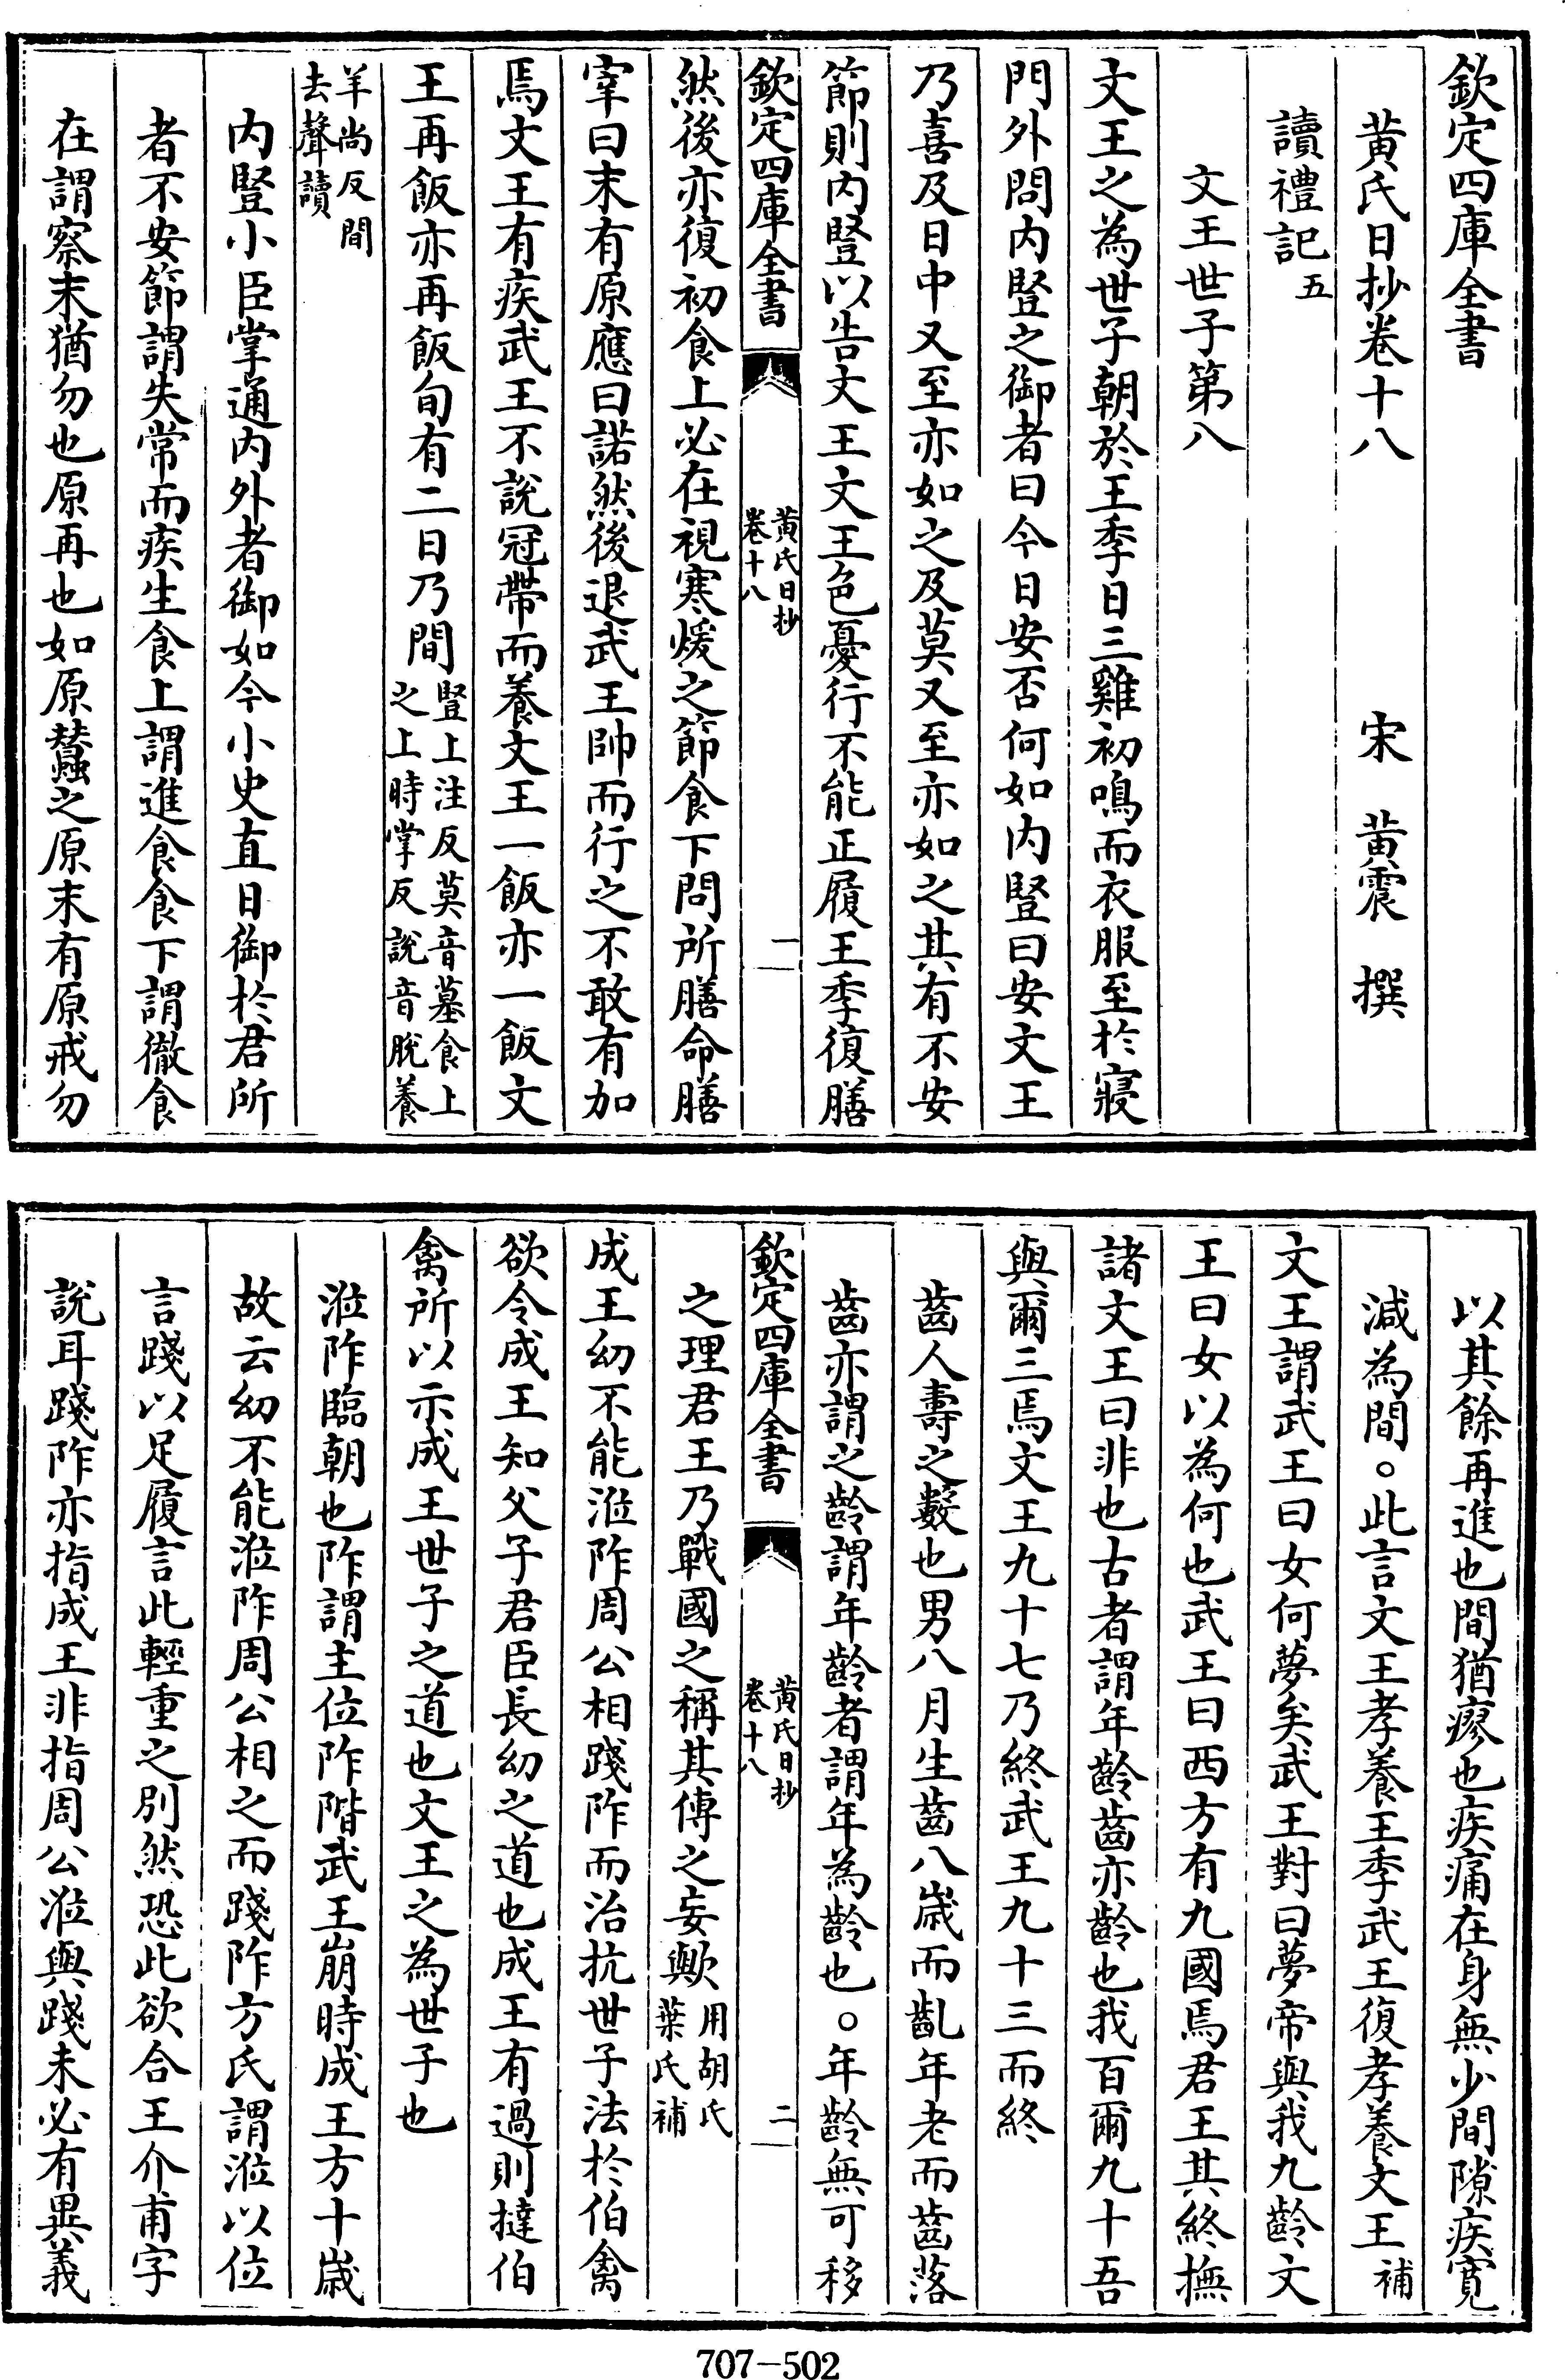 欽定四庫全書
黃氏日抄卷十八　宋　黃震　撰
讀禮記五
文王世子第八
文王之為世子朝於王季日三雞初鳴而衣服至於寢
門外問内豎之御者曰今日安否何如内豎曰安文王
乃喜及日中又至亦如之及莫又至亦如之其有不安
節則内豎以告文王文王色憂行不能正履王季復膳
欽定四庫全書
黃氏日抄
卷十八
一
然後亦復初食上必在視寒煖之節食下問所膳命膳
宰曰末有原應曰諾然後退武王帥而行之不敢有加
焉文王有疾武王不說冠帶而養文王一飯亦一飯文
王再飯亦再飯旬有二日乃間豎上注反莫音墓食上
之上時掌反說音脫養
羊尚反間
去聲讀
内豎小臣掌通内外者御如今小史直日御於君所
者不安節謂失常而疾生食上謂進食食下謂徹食
在謂察末猶勿也原再也如原蠶之原末有原戒勿
以其餘再進也間猶瘳也疾痛在身無少間隙疾寛
減為間○此言文王孝養王季武王復孝養文王補
文王謂武王曰女何夢矣武王對曰夢帝與我九齡文
王曰女以為何也武王曰西方有九國焉君王其終撫
諸文王曰非也古者謂年齡齒亦齡也我百爾九十吾
與爾三焉文王九十七乃終武王九十三而終
齒人壽之數也男八月生齒八歲而齓年老而齒落
齒亦謂之齡謂年齡者謂年為齡也○年齡無可移
欽定四庫全書
黃氏日抄
卷十八
二
之理君王乃戰國之稱其傳之妄歟用胡氏
葉氏補
成王幼不能涖阼周公相踐阼而治抗世子法於伯禽
欲令成王知父子君臣長幼之道也成王有過則撻伯
禽所以示成王世子之道也文王之為世子也
涖阼臨朝也阼謂主位阼階武王崩時成王方十歲
故云幼不能涖阼周公相之而踐阼方氏謂涖以位
言踐以足履言此輕重之別然恐此欲合王介甫字
說耳踐阼亦指成王非指周公涖與踐未必有異義
707-502